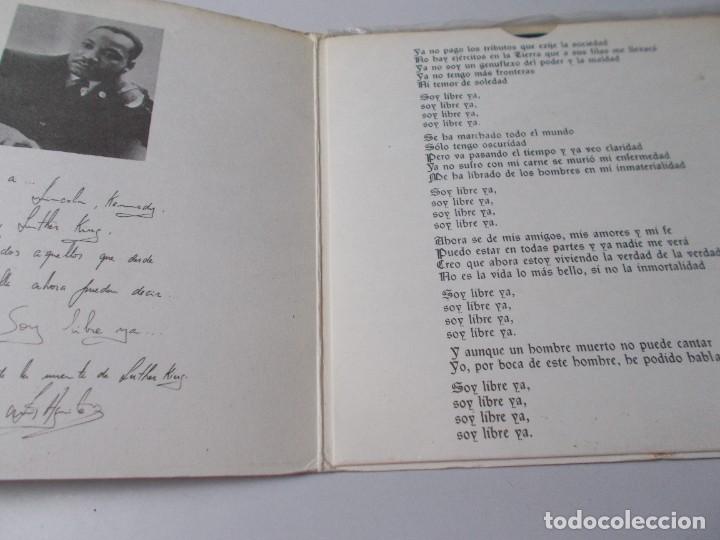 a... Lincoln, Kennedy,
Luther King,
dos aquellos que desde
ahora puedan decir...
Soy libre ya...
de la muerte de Luther King
Ya no pago los tributos que exije la sociedad
No hay ejércitos en la Tierra que a sus filas me llevará
Ya no soy un genuflexo del poder y la maldad
Ya no tengo más fronteras
Ni temor de soledad
Soy libre ya,
soy libre ya,
soy libre ya,
soy libre ya.
Se ha marchado todo el mundo
Sólo tengo oscuridad
Pero va pasando el tiempo y ya veo claridad
Ya no sufro con mi carne se murió mi enfermedad
Me ha librado de los hombres en mi inmaterialidad
Soy libre ya,
soy libre ya,
soy libre ya,
soy libre ya.
Ahora se de mis amigos, mis amores y mi fe
Puedo estar en todas partes y ya nadie me verá
Creo que ahora estoy viviendo la verdad de la verdad
No es la vida lo más bello, si no la inmortalidad
Soy libre ya,
soy libre ya,
soy libre ya,
soy libre ya.
Y aunque un hombre muerto no puede cantar
Yo, por boca de este hombre, he podido habla
Soy libre ya,
soy libre ya,
soy libre ya,
soy libre ya.
todocoleccion
todocoleccion.net